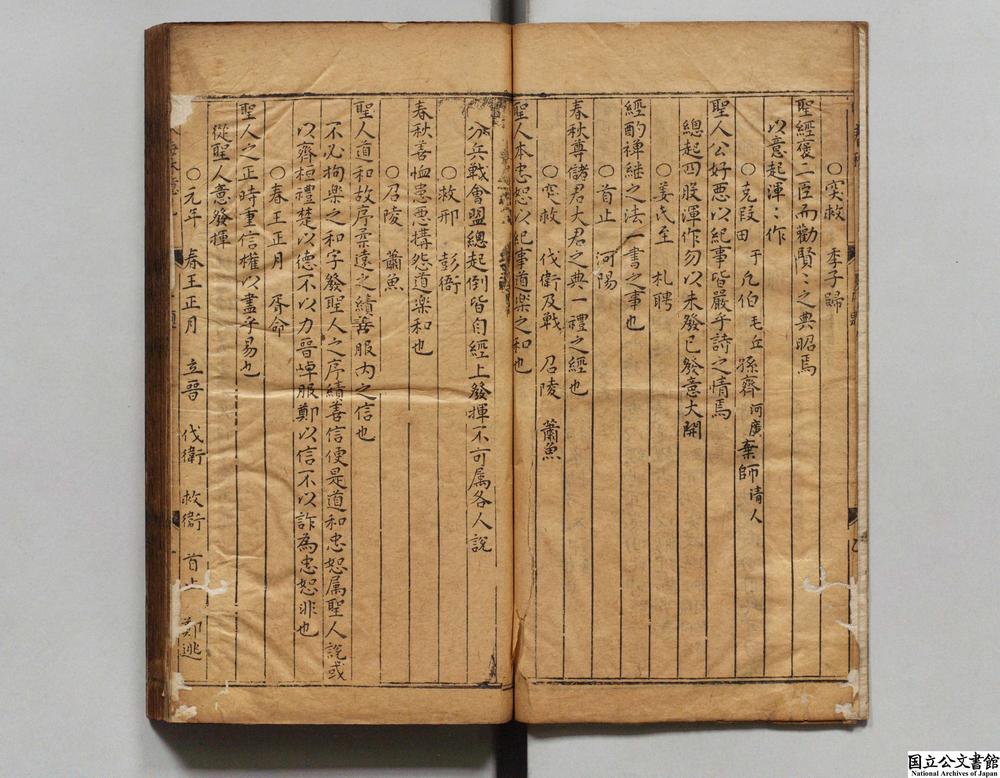 ○突救　季子歸
聖經褒二臣而勸賢〻之典昭焉
以意起渾〻作
○克段　田于　凡伯毛丘　孫齊河廣　棄師清人
聖人公好惡以紀事皆嚴乎詩之情焉
總起四股渾作勿以未發已發意大開
○姜氏至　札聘
經酌禪繼之法一書之事也
○首止　河陽
春秋尊諸君大君之典一禮之經也
○突救　伐衛及戰　召陵　蕭魚
聖人本忠恕以紀事道樂之和也
分兵戰會盟總起倒皆自經上發揮不可属各人說
○救邢　彭衙
春秋善恤患惡搆怨道樂和也
○召陵　蕭魚
聖人道和故序柔遠之績善服内之信也
不必拘樂之和字發聖人之序績善信便是道和忠恕属聖人說或
以齊桓禮楚以德不以力晉悼服鄭以信不以詐為忠恕非也
○春王正月　胥命
聖人之正時重信權以盡乎易也
從聖人意發揮
○元年　春王正月　立晉　伐衛　救衛　首止　鄭逃
国立公文書館
National Archives of Japan